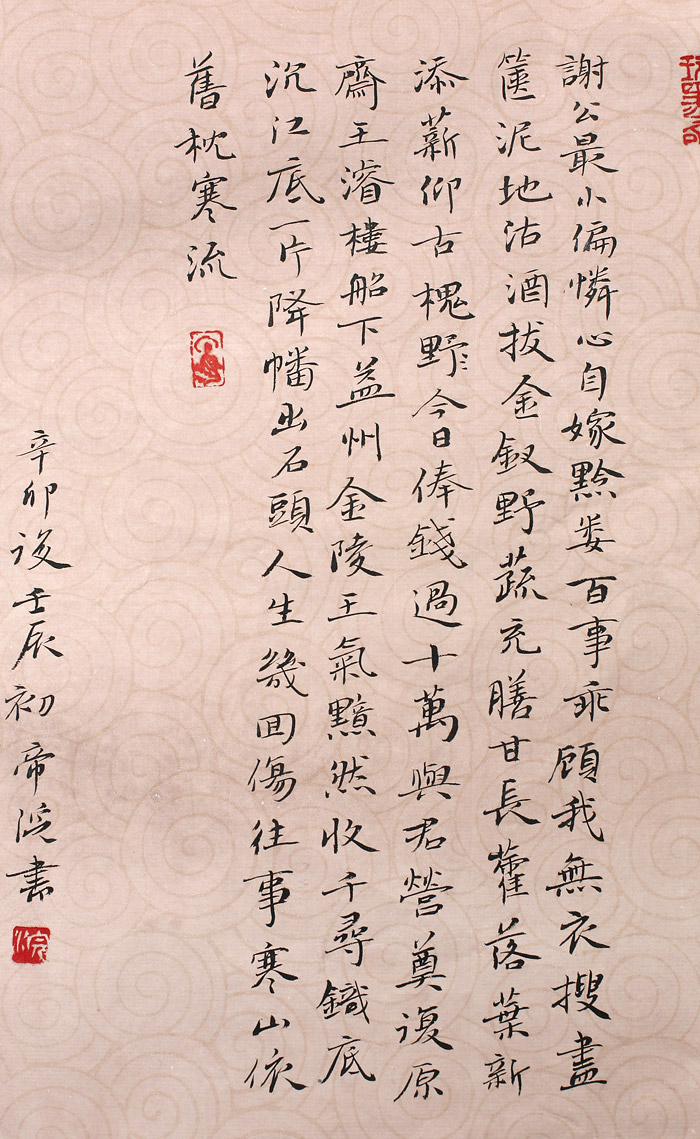 謝公最小偏憐心自嫁黔婁百事乖顧我無衣搜盡
篋泥地沽酒拔金釵野蔬充膳甘長藿落葉新
添薪仰古槐野今日俸錢過十萬與君營奠復原
齋王濬樓船下益州金陵王氣黯然收千尋鐵底
沉江底一片降幡出石頭人生幾回傷往事寒山依
舊枕寒流
辛卯後壬辰初帝書